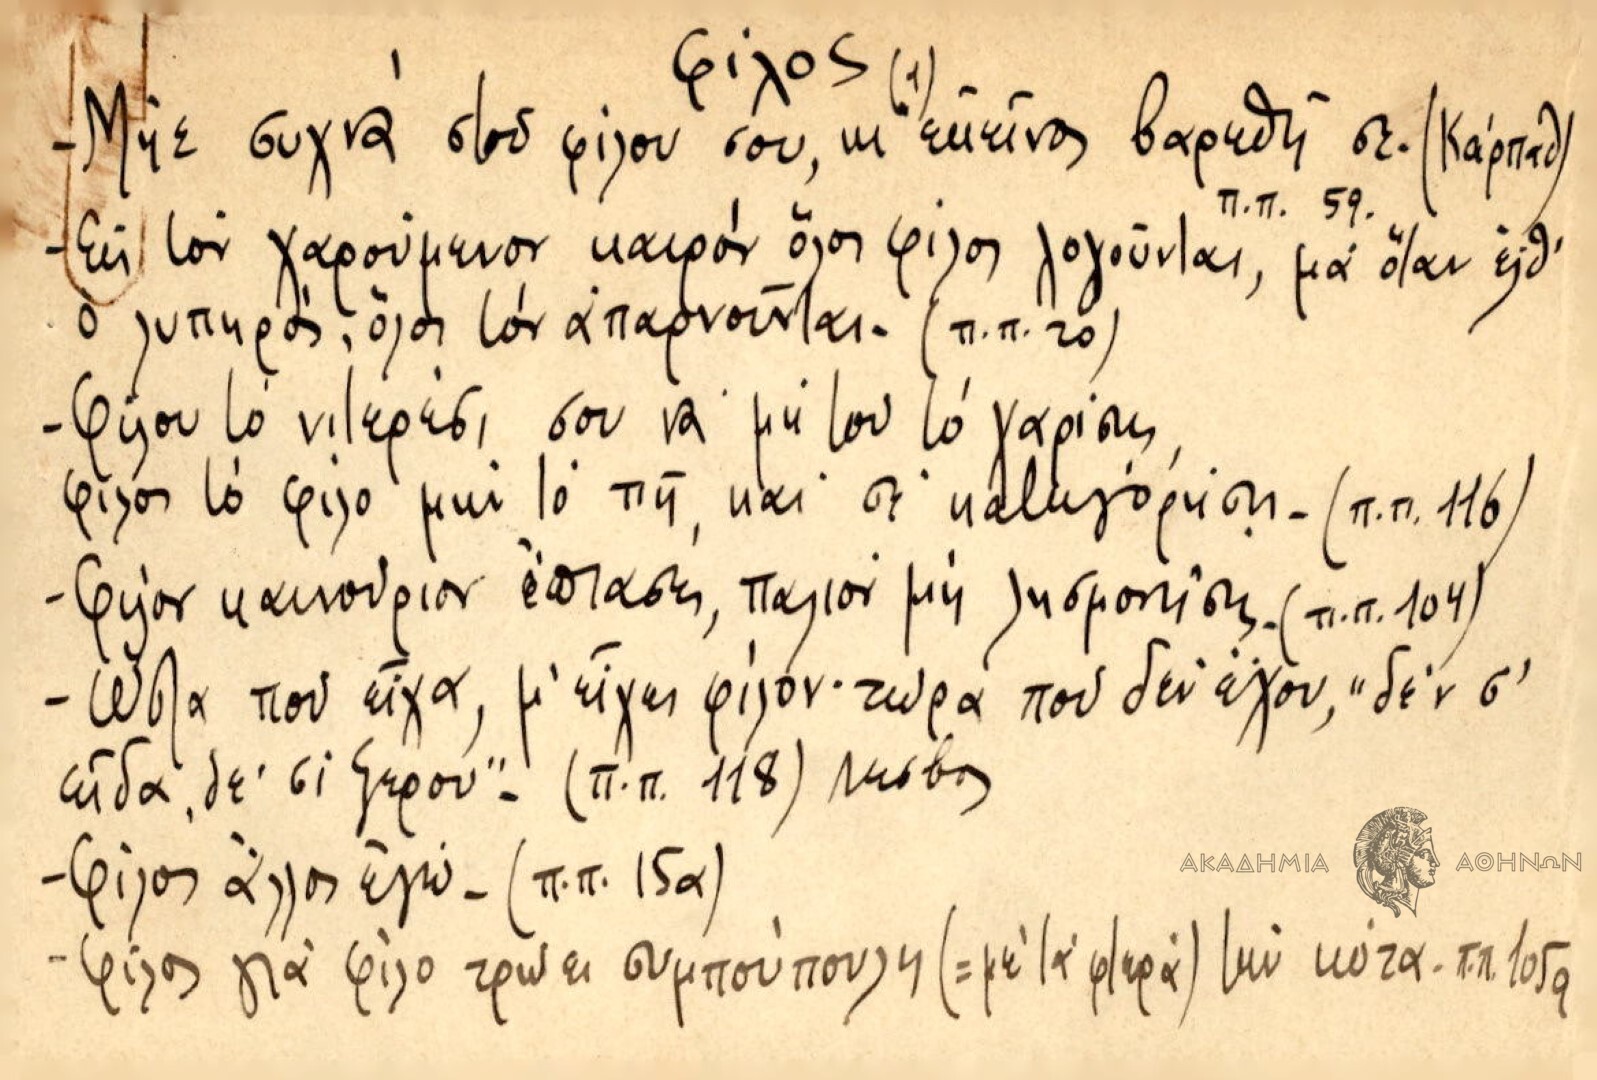 φίλος (1)
- Μῆε συχνὰ στοῦ φίλου σου, κι ἐκεῖνος βαρεθῇ σε. (Κάρπαθ)
π.π. 59.
- Εἰς τὸν χαρούμενον καιρὸν ὅλοι φίλοι λογοῦνται, μὰ ὅταν ἐλθ'
ὁ λυπηρός, ὅλοι τὸν ἀπαρνοῦνται - (π.π. 20)
- Φίλου τὸ νιτερέσι σου νὰ μὴ τοῦ τὸ χαρίσῃς,
φίλος τὸ φίλο μὴ τὸ πῇ, καὶ σὲ κατηγορήσῃ - (π.π. 116)
- Φίλον καινούριον ἔπιασες, παλιὸν μὴ λησμονήσῃς - (π.π. 104)
- Ὥστα ποὺ εἶχα, μ' εἶχες φίλον· τώρα ποὺ δὲν ἔχου, "δέν σ'
εἶδα, δέ σὶ ξέρου" - (π.π. 118) Λέσβος
- Φίλος ἄλλος ἐγώ - (π.π. 15α)
- Φίλος γιὰ φίλο τρώει συμπούπουλη (= μὲ τὰ φτερὰ) τὴν κότα - π.π. 105α
ΑΚΑΔΗΜΙΑ ΑΘΗΝΩΝ